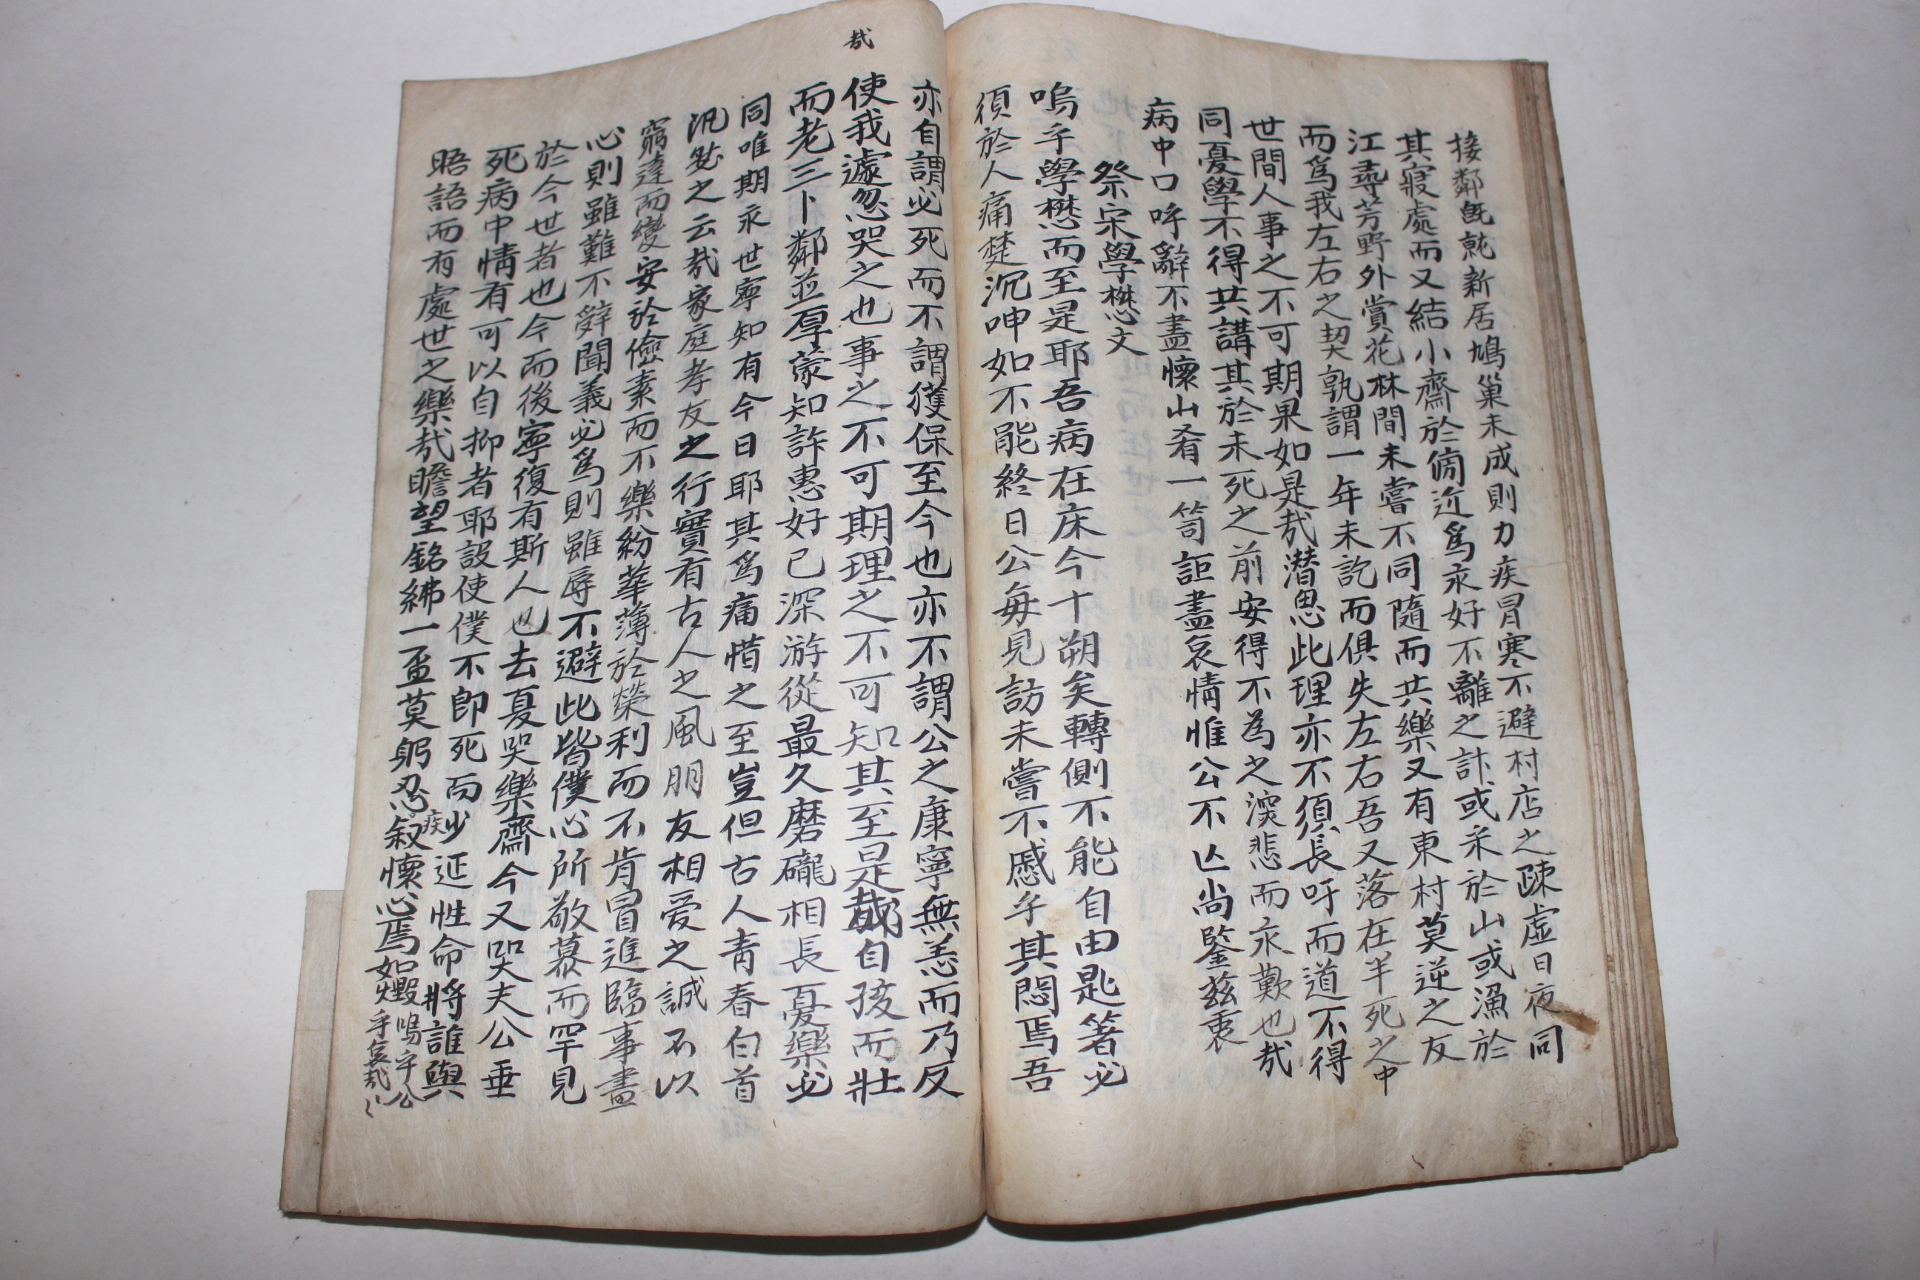 接鄰旣就新居鳩巢未成則力疾冒寒不避村店之踈虛日夜同
其寢處而又結小齋於傍近爲永好不離之計或采於山或漁於
江尋芳野外賞花林間未嘗不同隨而共樂又有東村莫逆之友
而爲我左右之契孰謂一年未訖而俱失左右吾又落在半死之中
世間人事之不可期果如是哉潜思此理亦不須長吁而道不得
同憂學不得共講其於未死之前安得不為之深悲而永歎也哉
病中口呼辭不盡懷山肴一笥詎盡哀情惟公不亡尚鑒玆衷
祭宋學懋文
嗚乎學懋而至是耶吾病在床今十朔矣轉側不能自由匙箸必
須於人痛楚沉呻如不能終日公每見訪未嘗不慼乎其悶焉吾
亦自謂必死而不謂獲保至今也亦不謂公之康寧無恙而乃反
使我遽忽哭之也事之不可期理之不可知其至是哉自孩而壯
哉
而老三卜鄰並厚蒙知許惠好已深游從最久磨礲相長憂樂必
同唯期永世寧知有今日耶其爲痛惜之至豈但古人靑春白首
況然之云哉家庭孝友之行實有古人之風朋友相愛之誠不以
窮達而變安於儉素而不樂紛華薄於榮利而不肯冒進臨事盡
心則雖難不辭聞義必爲則雖辱不避此皆僕心所敬慕而罕見
於今世者也今而後寧復有斯人也去夏哭樂齋今又哭夫公垂
死病中情有可以自抑者耶設使僕不卽死而少延性命將誰與
疾
晤語而有處世之樂哉瞻望銘紼一盃莫躬忍叙懷心焉如燬嗚乎公
乎哀哉〻